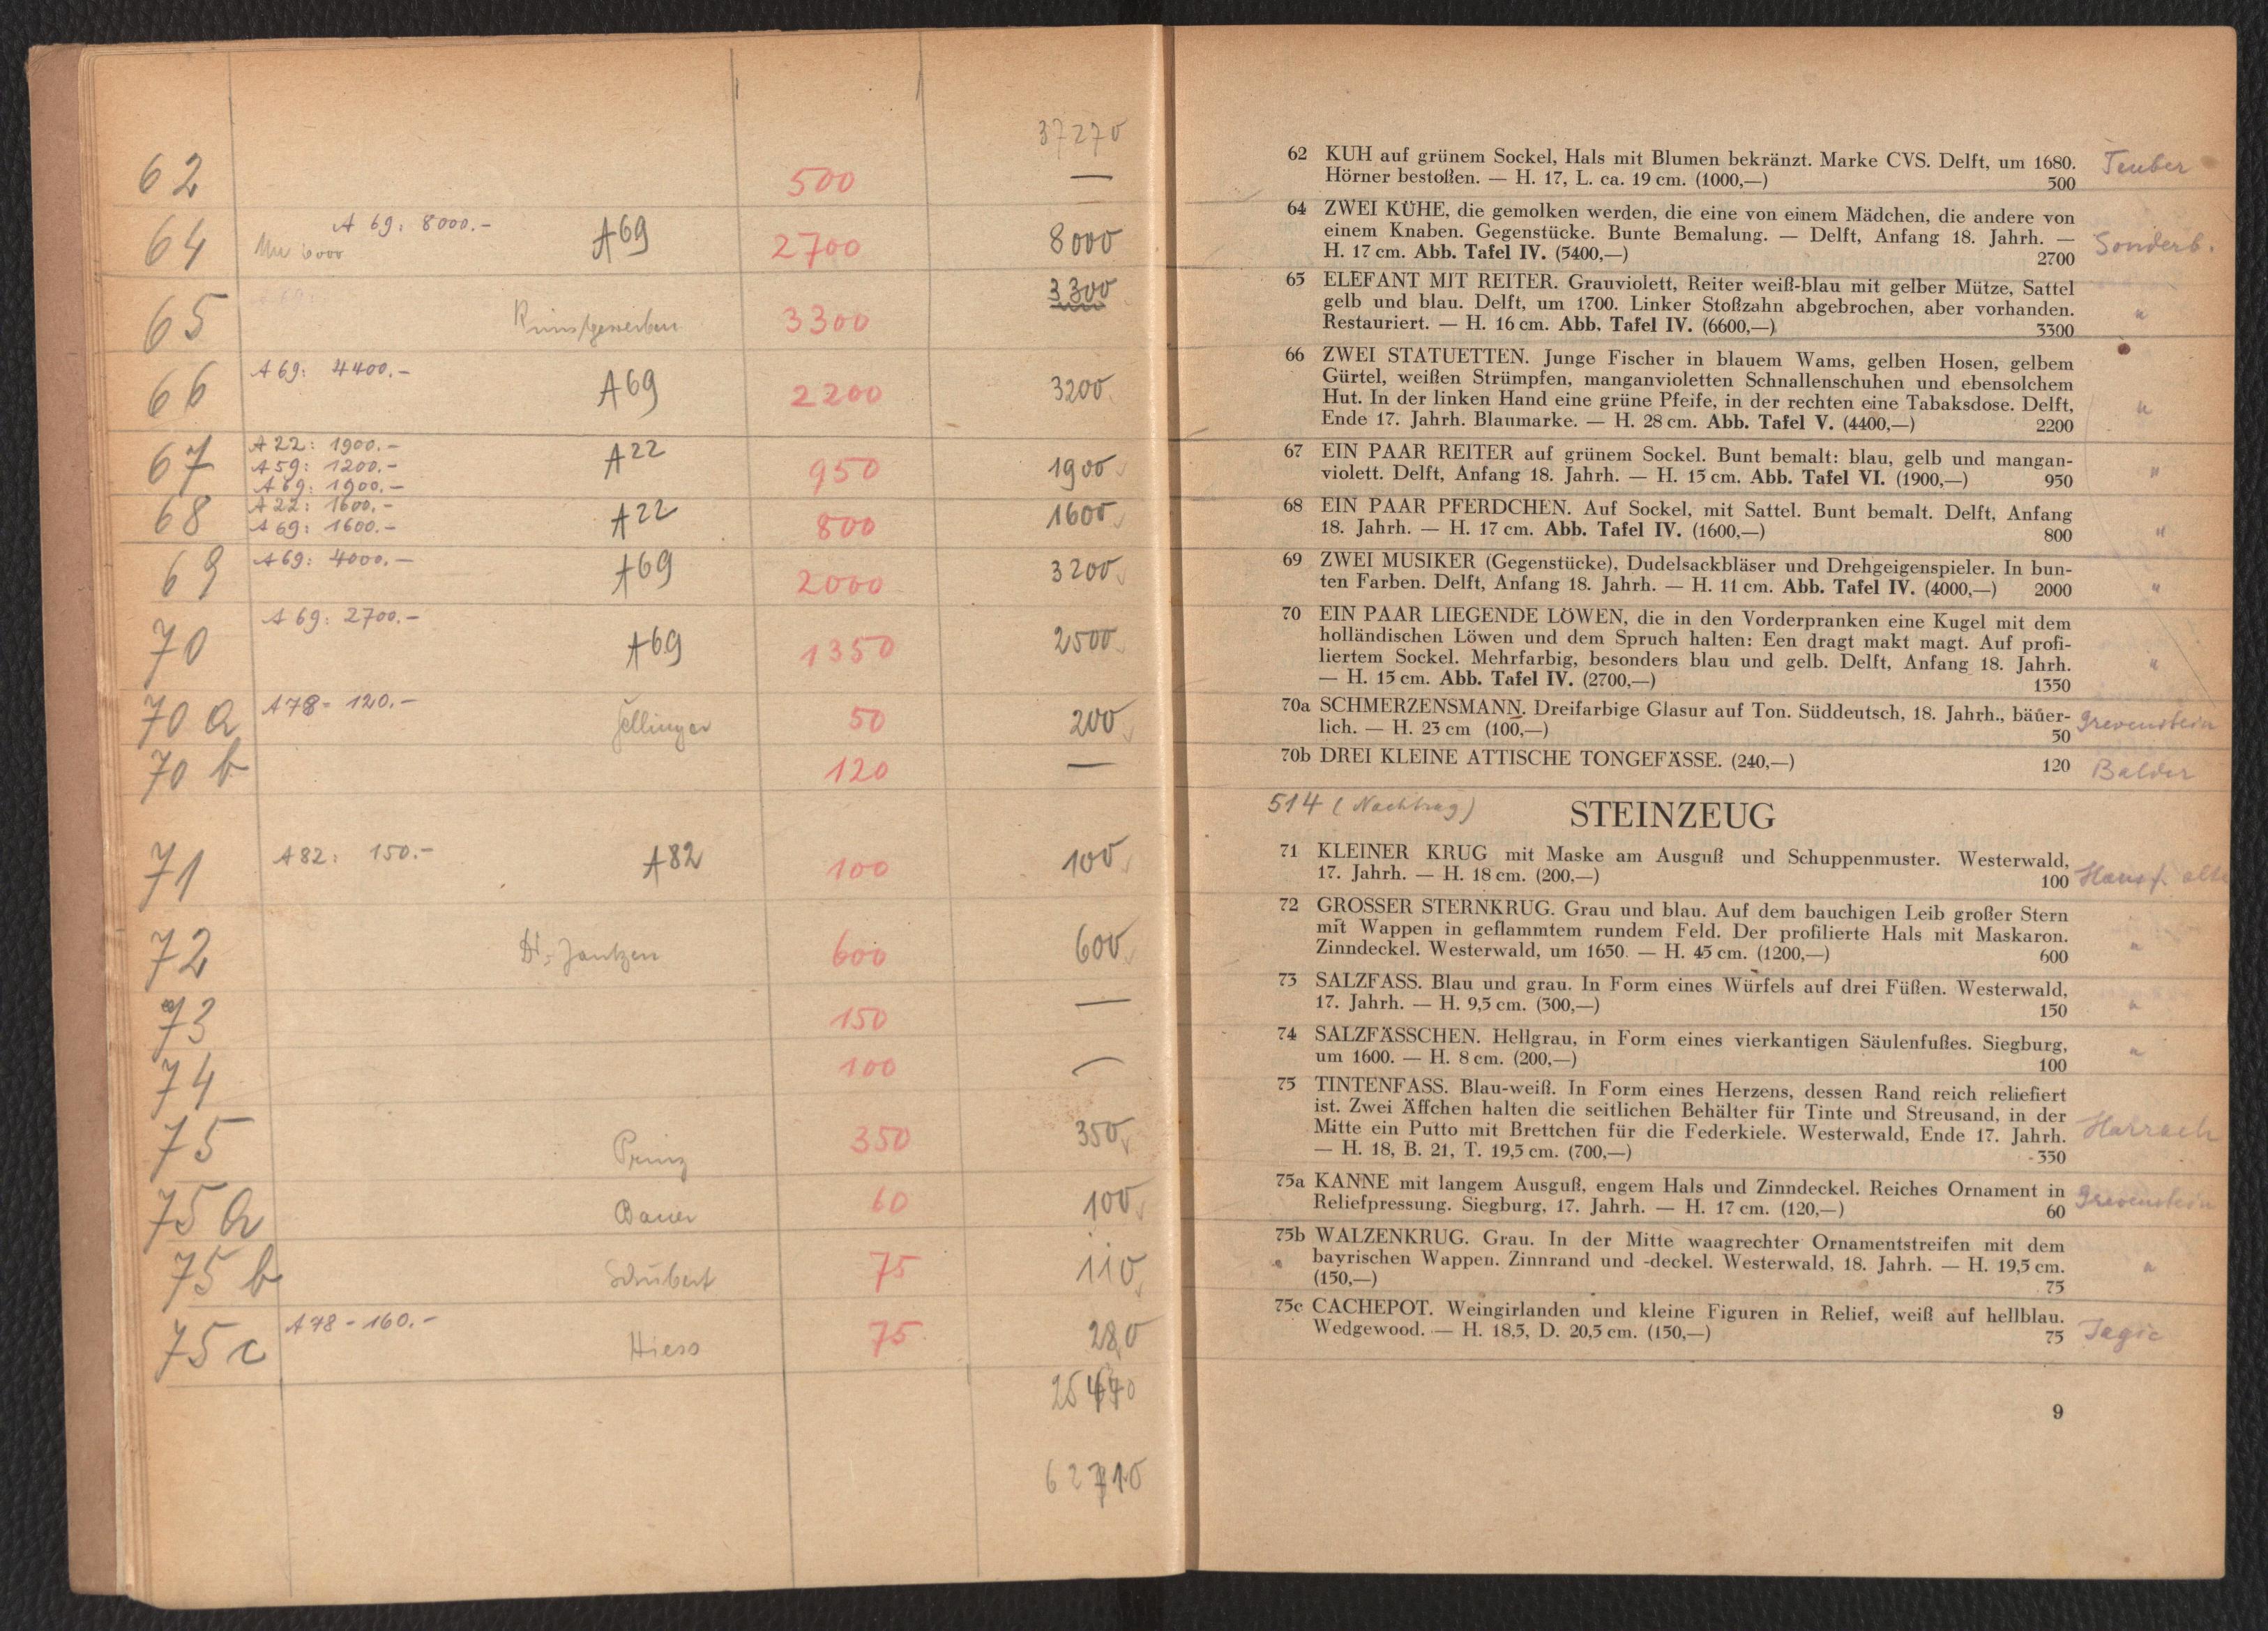 37270
62 500 —
A 69: 8000.-
64 6000 A69 2700 8000
65 3300 3300
A 69: 4400.-
66 A69 2200 3200
A 22: 1900.-
67 A 59: 1200.- A22 950 1900
A 69: 1900.-
A 22: 1600.-
68 A 69: 1600.- A22 800 1600
A 69: 4000.-
69 A69 2000 3200
A 69: 2700.-
70 A69 1350 2500
A 78- 120.-
70 a 50 200
70 b 120 —
71 A 82: 150.- A82 100 100
72 Jantzen 600 600
73 150 —
74 100 —
75 Prinz 350 350
75 a Bauer 60 100
75 b Schubert 75 110
A 78 - 160.-
75 c Hiess 75 280
62710
62 KUH auf grünem Sockel, Hals mit Blumen bekränzt. Marke CVS. Delft, um 1680. Teuber
Hörner bestoßen. — H. 17, L. ca. 19 cm. (1000,—) 500
64 ZWEI KÜHE, die gemolken werden, die eine von einem Mädchen, die andere von
einem Knaben. Gegenstücke. Bunte Bemalung. — Delft, Anfang 18. Jahrh. — Sonderb.
H. 17 cm. Abb. Tafel IV. (5400,—) 2700
65 ELEFANT MIT REITER. Grauviolett, Reiter weiß-blau mit gelber Mütze, Sattel
gelb und blau. Delft, um 1700. Linker Stoßzahn abgebrochen, aber vorhanden. "
Restauriert. — H. 16 cm. Abb. Tafel IV. (6600,—) 3300
66 ZWEI STATUETTEN. Junge Fischer in blauem Wams, gelben Hosen, gelbem
Gürtel, weißen Strümpfen, manganvioletten Schnallenschuhen und ebensolchem
Hut. In der linken Hand eine grüne Pfeife, in der rechten eine Tabaksdose. Delft, "
Ende 17. Jahrh. Blaumarke. — H. 28 cm. Abb. Tafel V. (4400,—) 2200
67 EIN PAAR REITER auf grünem Sockel. Bunt bemalt: blau, gelb und mangan-
violett. Delft, Anfang 18. Jahrh. — H. 15 cm. Abb. Tafel VI. (1900,—) 950 "
68 EIN PAAR PFERDCHEN. Auf Sockel, mit Sattel. Bunt bemalt. Delft, Anfang
18. Jahrh. — H. 17 cm. Abb. Tafel IV. (1600,—) 800 "
69 ZWEI MUSIKER (Gegenstücke), Dudelsackbläser und Drehgeigenspieler. In bun-
ten Farben. Delft, Anfang 18. Jahrh. — H. 11 cm. Abb. Tafel IV. (4000,—) 2000 "
70 EIN PAAR LIEGENDE LÖWEN, die in den Vorderpranken eine Kugel mit dem
holländischen Löwen und dem Spruch halten: Een dragt makt magt. Auf profi-
liertem Sockel. Mehrfarbig, besonders blau und gelb. Delft, Anfang 18. Jahrh. "
— H. 15 cm. Abb. Tafel IV. (2700,—) 1350
70a SCHMERZENSMANN. Dreifarbige Glasur auf Ton. Süddeutsch, 18. Jahrh., bäuer- Grevenstein
lich. — H. 23 cm (100,—) 50
70b DREI KLEINE ATTISCHE TONGEFÄSSE. (240,—) 120 Balder
514 (Nachtrag)
STEINZEUG
71 KLEINER KRUG mit Maske am Ausguß und Schuppenmuster. Westerwald,
17. Jahrh. — H. 18 cm. (200,—) 100
72 GROSSER STERNKRUG. Grau und blau. Auf dem bauchigen Leib großer Stern
mit Wappen in geflammtem rundem Feld. Der profilierte Hals mit Maskaron. "
Zinndeckel. Westerwald, um 1650. — H. 45 cm. (1200,—) 600
73 SALZFASS. Blau und grau. In Form eines Würfels auf drei Füßen. Westerwald,
17. Jahrh. — H. 9,5 cm. (300,—) 150 "
74 SALZFÄSSCHEN. Hellgrau, in Form eines vierkantigen Säulenfußes. Siegburg, "
um 1600. — H. 8 cm. (200,—) 100
75 TINTENFASS. Blau-weiß. In Form eines Herzens, dessen Rand reich reliefiert
ist. Zwei Äffchen halten die seitlichen Behälter für Tinte und Streusand, in der
Mitte ein Putto mit Brettchen für die Federkiele. Westerwald, Ende 17. Jahrh. Harrach
— H. 18, B. 21, T. 19,5 cm. (700,—) 350
75a KANNE mit langem Ausguß, engem Hals und Zinndeckel. Reiches Ornament in Grevenstein
Reliefpressung. Siegburg, 17. Jahrh. — H. 17 cm. (120,—) 60
75b WALZENKRUG. Grau. In der Mitte waagrechter Ornamentstreifen mit dem
bayrischen Wappen. Zinnrand und -deckel. Westerwald, 18. Jahrh. — H. 19,5 cm. "
(150,—) 75
75c CACHEPOT. Weingirlanden und kleine Figuren in Relief, weiß auf hellblau.
Wedgewood. — H. 18,5, D. 20,5 cm. (150,—) 75 Jagic
9